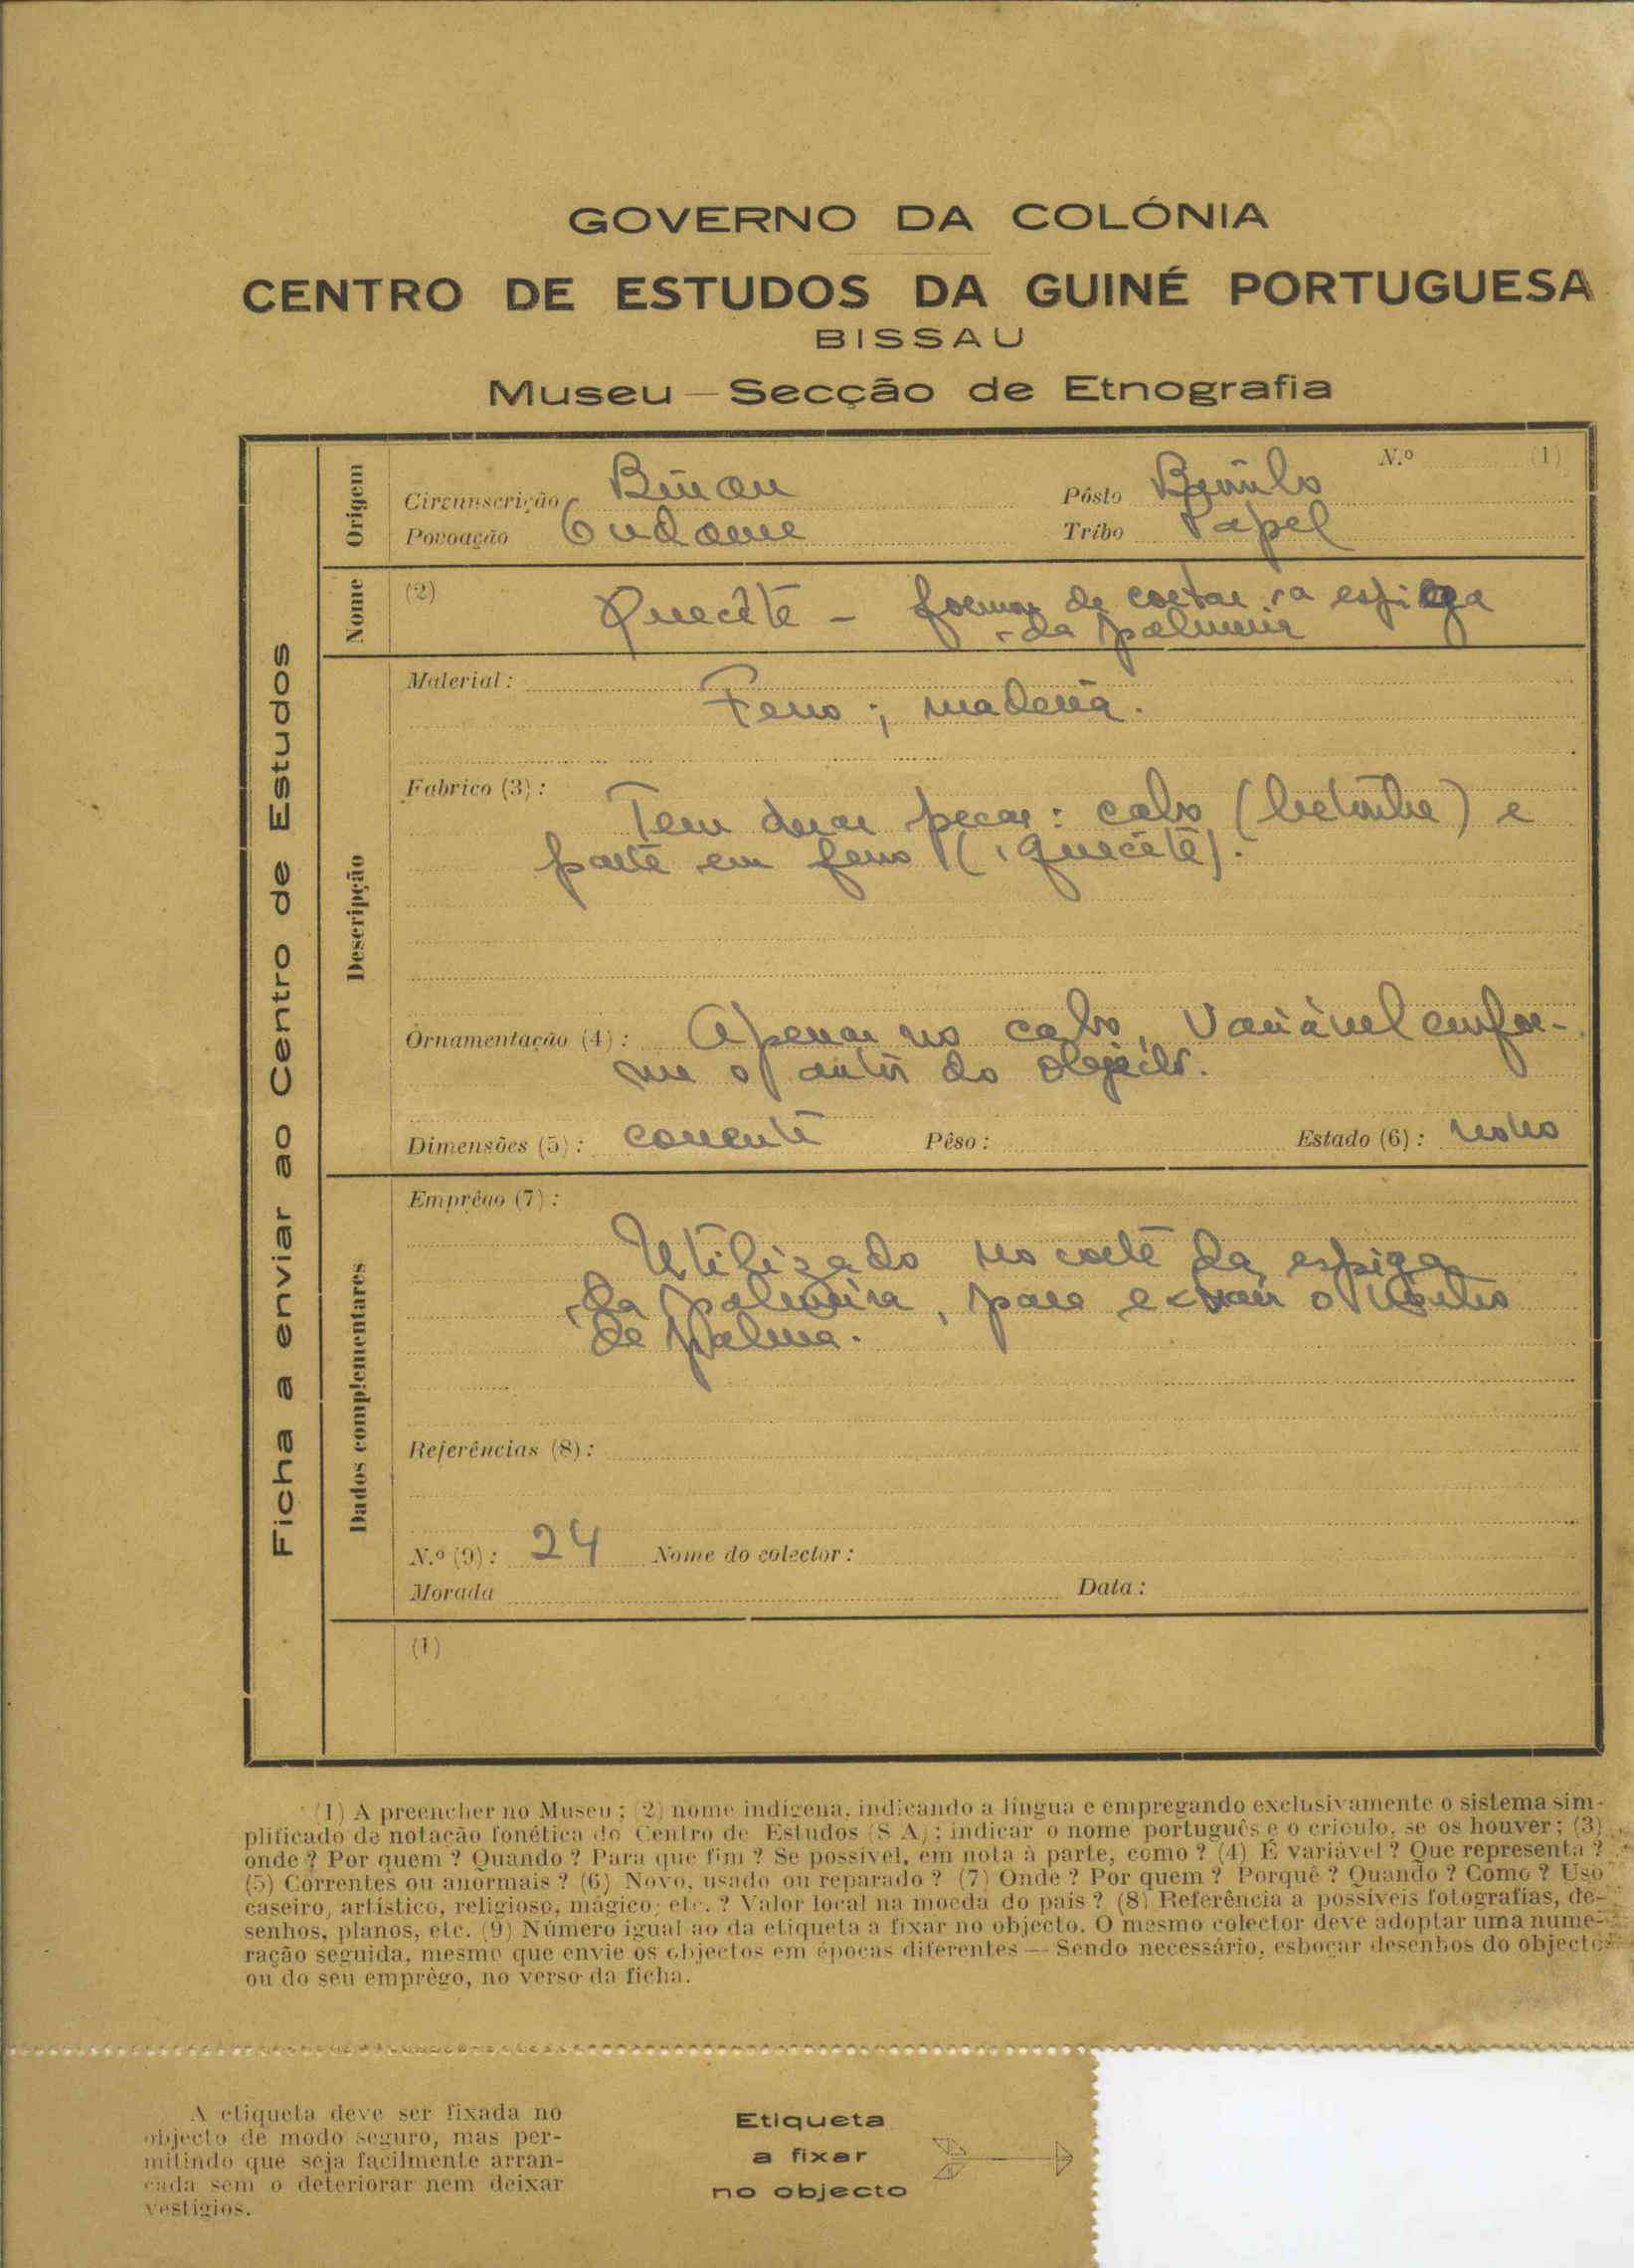 GOVERNO DA COLÓNIA
CENTRO DE ESTUDOS DA GUINÉ PORTUGUESA
BISSAU
Museu — Secção de Etnografia
Ficha a enviar ao Centro de Estudos
Origem
N.º (1)
Circunscrição Bissau Pôsto
Povoação Tribo Papel
Nome
(2) Quecête - de cortar a espiga
da palmeira
Descripção
Material:
Ferro; madeira.
Fabrico (3):
Tem duas peças: cabo ( ) e
parte em ferro (Quecête).
Ornamentação (4): Apenas no cabo, Variável confor-
me o autor do objecto.
Dimensões (5): corrente Pêso: Estado (6): novo
Dados complementares
Emprêgo (7):
Utilizado no corte da espiga
da palmeira, para extrair o vinho
de palma.
Referências (8):
N.º (9): 24 Nome do colector:
Morada Data:
(1)
(1) A preencher no Museu; (2) nome indígena, indicando a língua e empregando exclusivamente o sistema sim-
plificado de notação fonética do Centro de Estudos (S A); indicar o nome português e o crioulo, se os houver; (3)
onde? Por quem? Quando? Para que fim? Se possível, em nota à parte, como? (4) É variável? Que representa?
(5) Correntes ou anormais? (6) Novo, usado ou reparado? (7) Onde? Por quem? Porquê? Quando? Como? Uso
caseiro, artístico, religioso, mágico, etc.? Valor local na moeda do país? (8) Referência a possíveis fotografias, de-
senhos, planos, etc. (9) Número igual ao da etiqueta a fixar no objecto. O mesmo colector deve adoptar uma nume-
ração seguida, mesmo que envie os objectos em épocas diferentes — Sendo necessário, esboçar desenhos do objecto
ou do seu emprêgo, no verso da ficha.
A etiqueta deve ser fixada no
objecto de modo seguro, mas per-
mitindo que seja facilmente arran-
cada sem o deteriorar nem deixar
vestígios.
Etiqueta
a fixar
no objecto